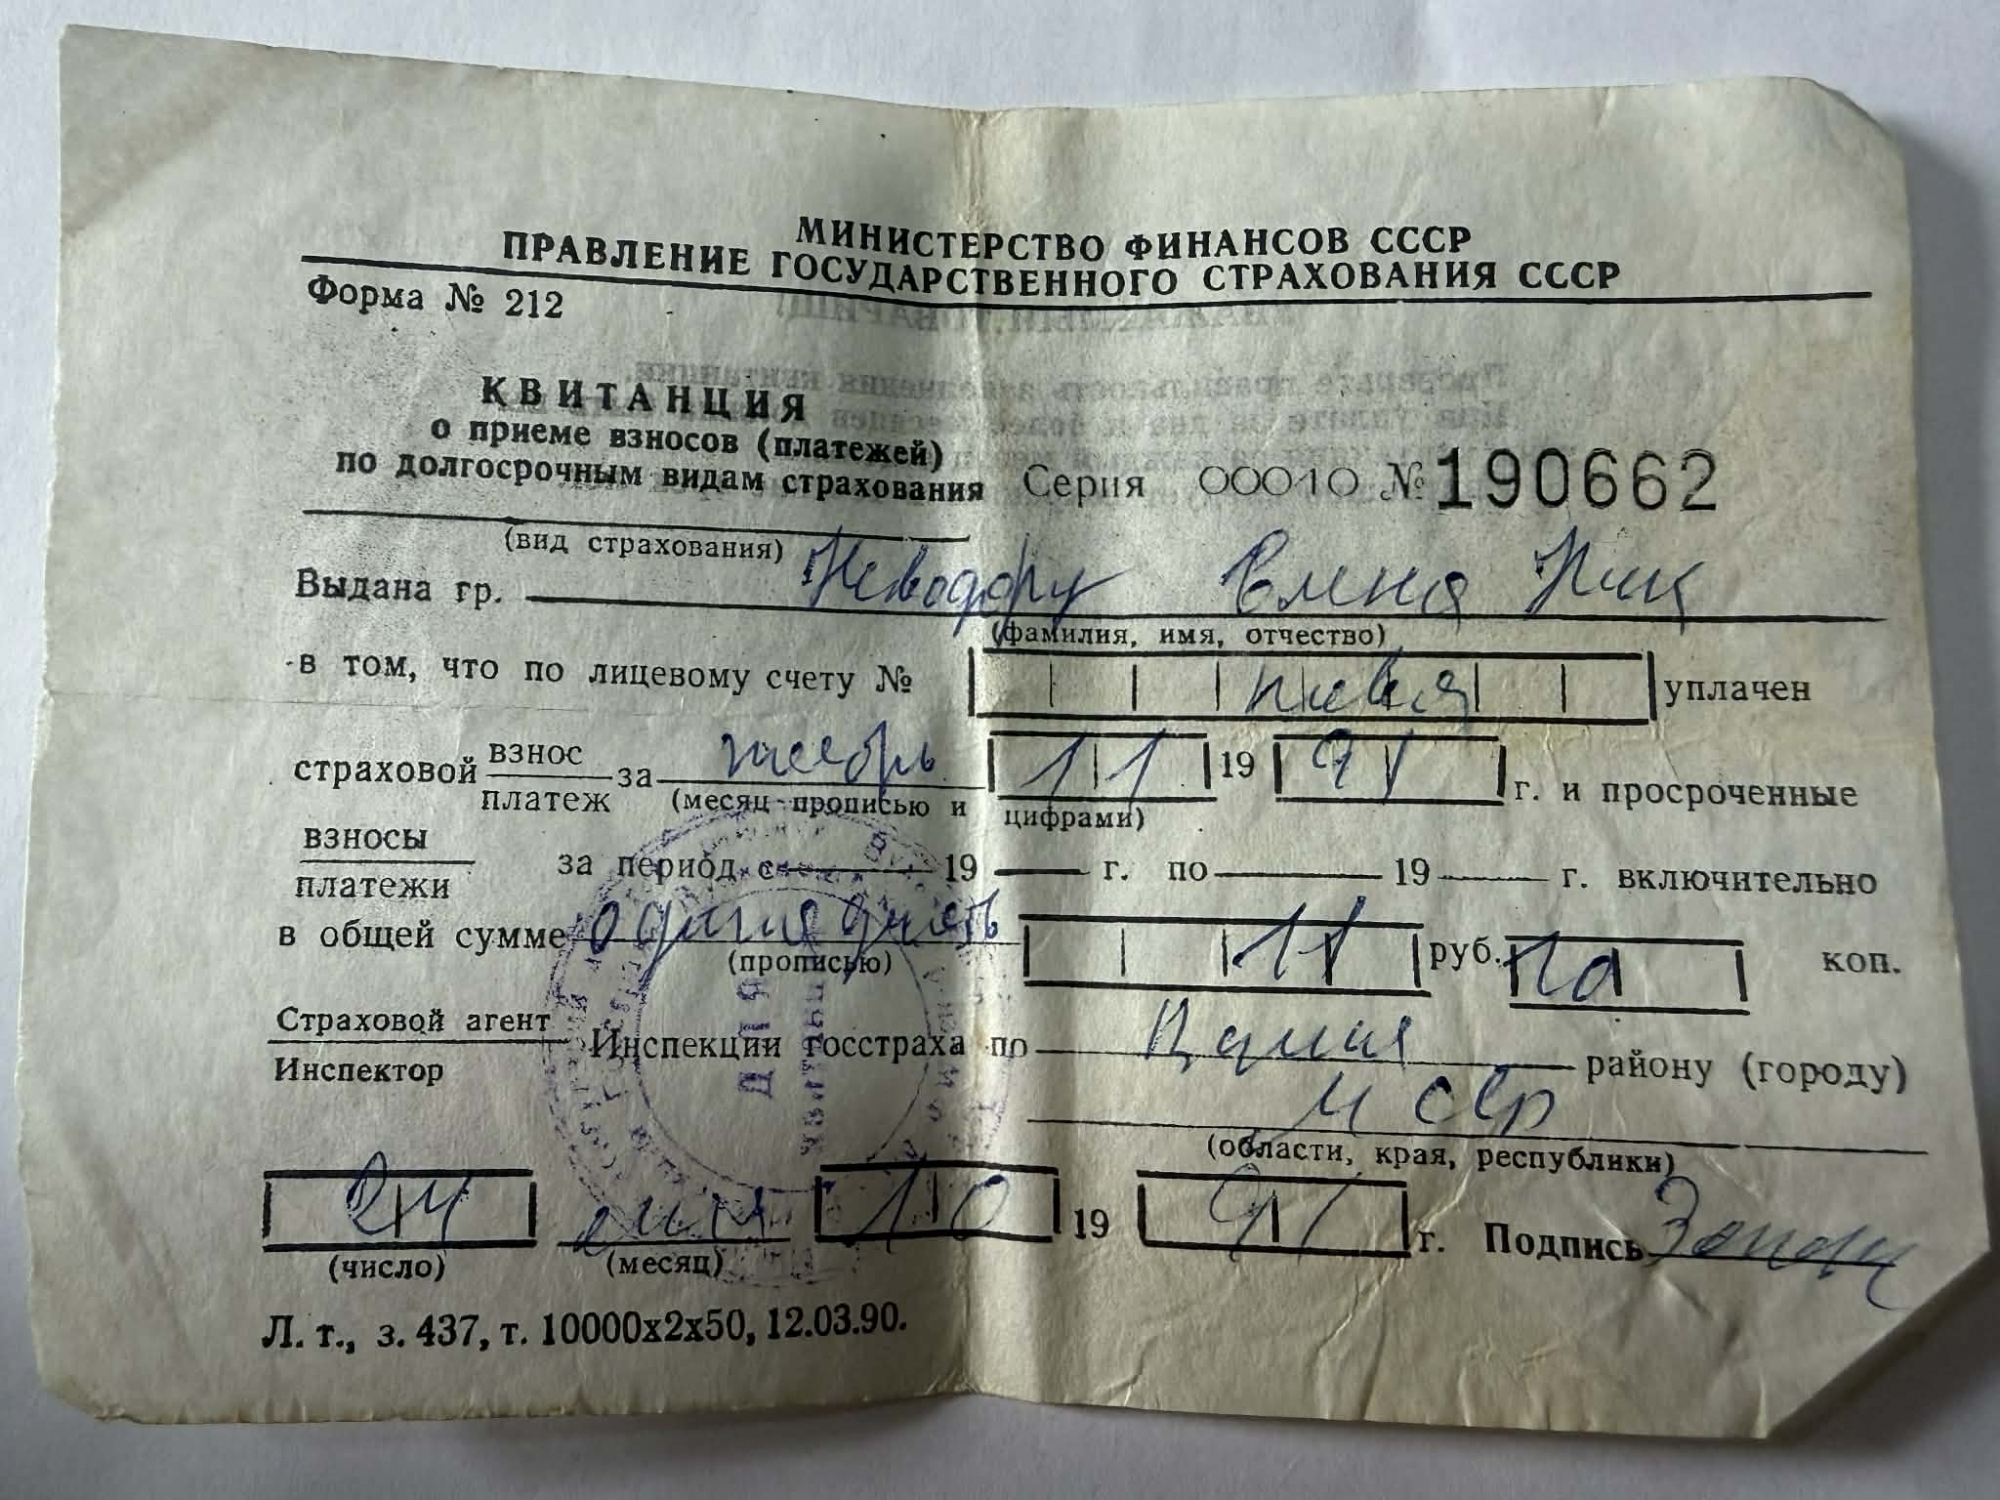 МИНИСТЕРСТВО ФИНАНСОВ СССР
ПРАВЛЕНИЕ ГОСУДАРСТВЕННОГО СТРАХОВАНИЯ СССР
Форма № 212
КВИТАНЦИЯ
о приеме взносов (платежей)
по долгосрочным видам страхования Серия 00010 № 190662
(вид страхования)
Выдана гр. Елена Ник
(фамилия, имя, отчество)
в том, что по лицевому счету № уплачен
страховой взнос за 11 19 91 г. и просроченные
платеж (месяц прописью и цифрами)
взносы
платежи за период с 19 г. по 19 г. включительно
в общей сумме 11 руб. коп.
(прописью)
Страховой агент
Инспектор Инспекции госстраха по району (городу)
МССР
(области, края, республики)
24 10 19 91 г. Подпись
(число) (месяц)
Л. т., з. 437, т. 10000х2х50, 12.03.90.